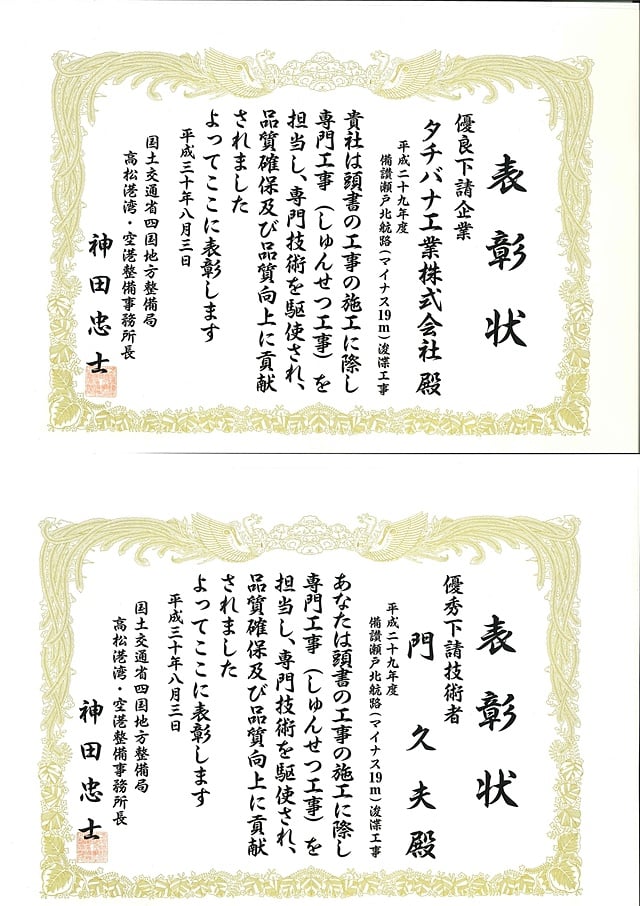 表彰状
優良下請企業
タチバナ工業株式会社 殿
平成二十九年度
備讃瀬戸北航路(マイナス19m)浚渫工事
貴社は頭書の工事の施工に際し
専門工事(しゅんせつ工事)を
担当し、専門技術を駆使され、
品質確保及び品質向上に貢献
されました
よってここに表彰します
平成三十年八月三日
国土交通省四国地方整備局
高松港湾・空港整備事務所長
神田忠士
表彰状
優秀下請技術者
門 久夫 殿
平成二十九年度
備讃瀬戸北航路(マイナス19m)浚渫工事
あなたは頭書の工事の施工に際し
専門工事(しゅんせつ工事)を
担当し、専門技術を駆使され、
品質確保及び品質向上に貢献
されました
よってここに表彰します
平成三十年八月三日
国土交通省四国地方整備局
高松港湾・空港整備事務所長
神田忠士